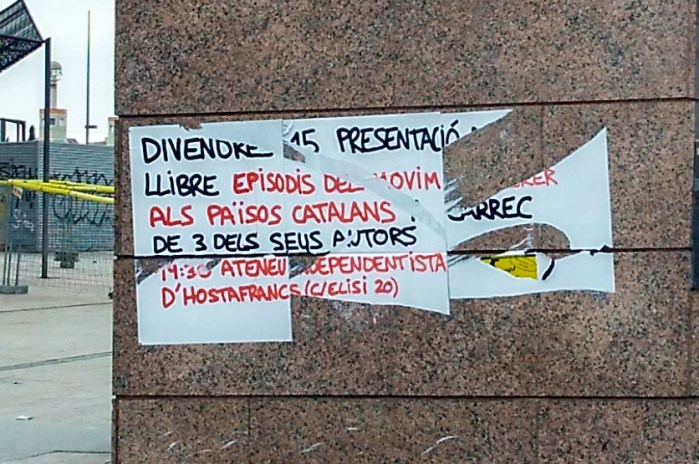 DIVENDRE 15 PRESENTACIÓ
LLIBRE EPISODIS DEL MOVIM RER
ALS PAÏSOS CATALANS CÀRREC
DE 3 DELS SEUS AUTORS
19:30 ATENEU DEPENDENTISTA
D'HOSTAFRANCS (C/ELISI 20)